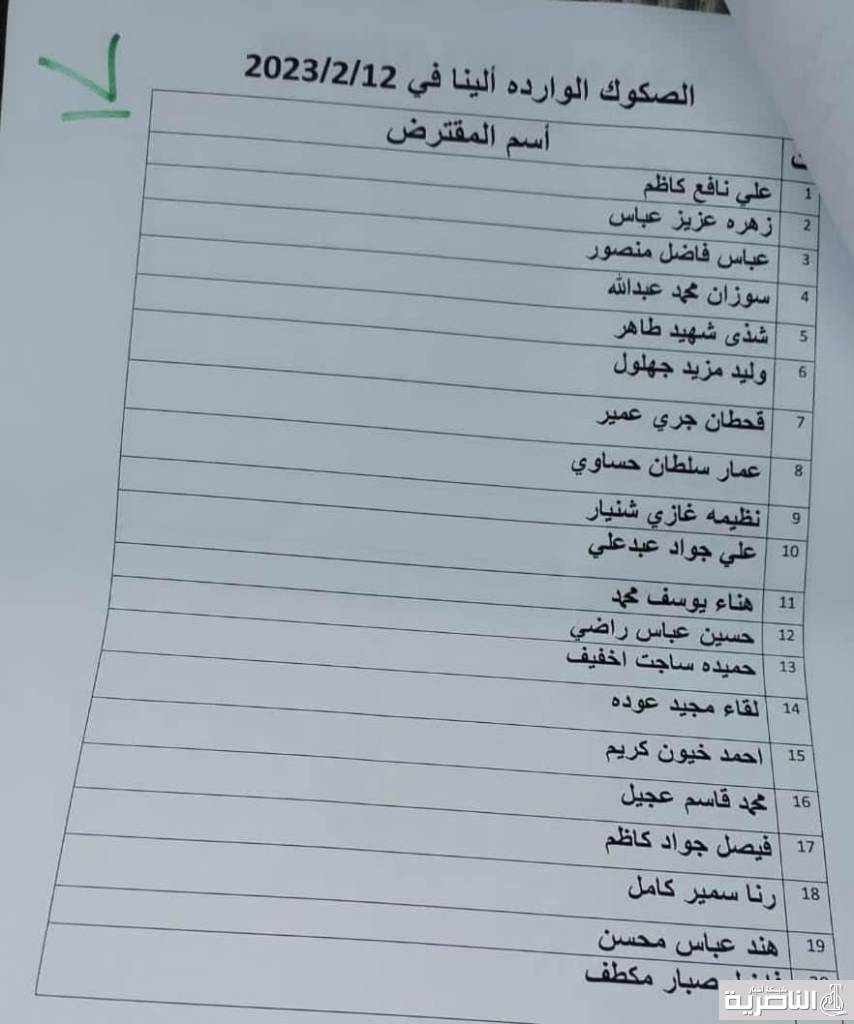 الصكوك الوارده ألينا في 2023/2/12
ت أسم المقترض
1 علي نافع كاظم
2 زهره عزيز عباس
3 عباس فاضل منصور
4 سوزان محمد عبدالله
5 شذى شهيد طاهر
6 وليد مزيد جهلول
7 قحطان جري عمير
8 عمار سلطان حساوي
9 نظيمه غازي شنيار
10 علي جواد عبدعلي
11 هناء يوسف محمد
12 حسين عباس راضي
13 حميده ساجت اخفيف
14 لقاء مجيد عوده
15 احمد خيون كريم
16 محمد قاسم عجيل
17 فيصل جواد كاظم
18 رنا سمير كامل
19 هند عباس محسن
20 صبار مكطف
الناصرية